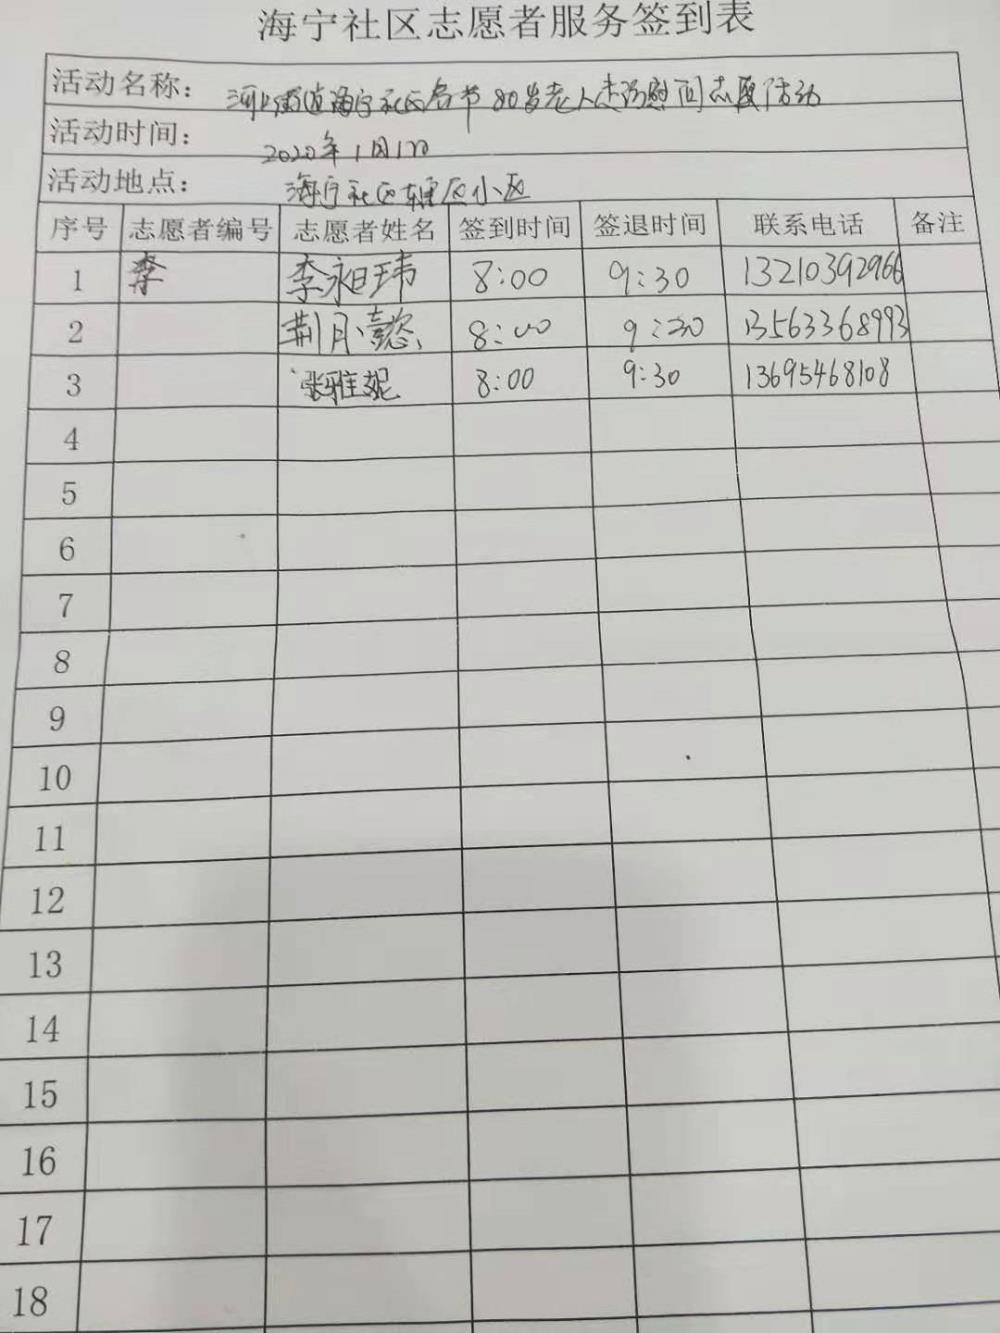 海宁社区志愿者服务签到表
活动名称： 海宁社区 节80岁老人走访慰问志愿活动
活动时间： 2020年1月17日
活动地点： 海宁社区辖区小区
序号 志愿者编号 志愿者姓名 签到时间 签退时间 联系电话 备注
1 李 李昶玮 8:00 9:30 13210392966
2 荆月懿 8:00 9:30 13563368993
3 张雅妮 8:00 9:30 13695468108
4
5
6
7
8
9
10
11
12
13
14
15
16
17
18